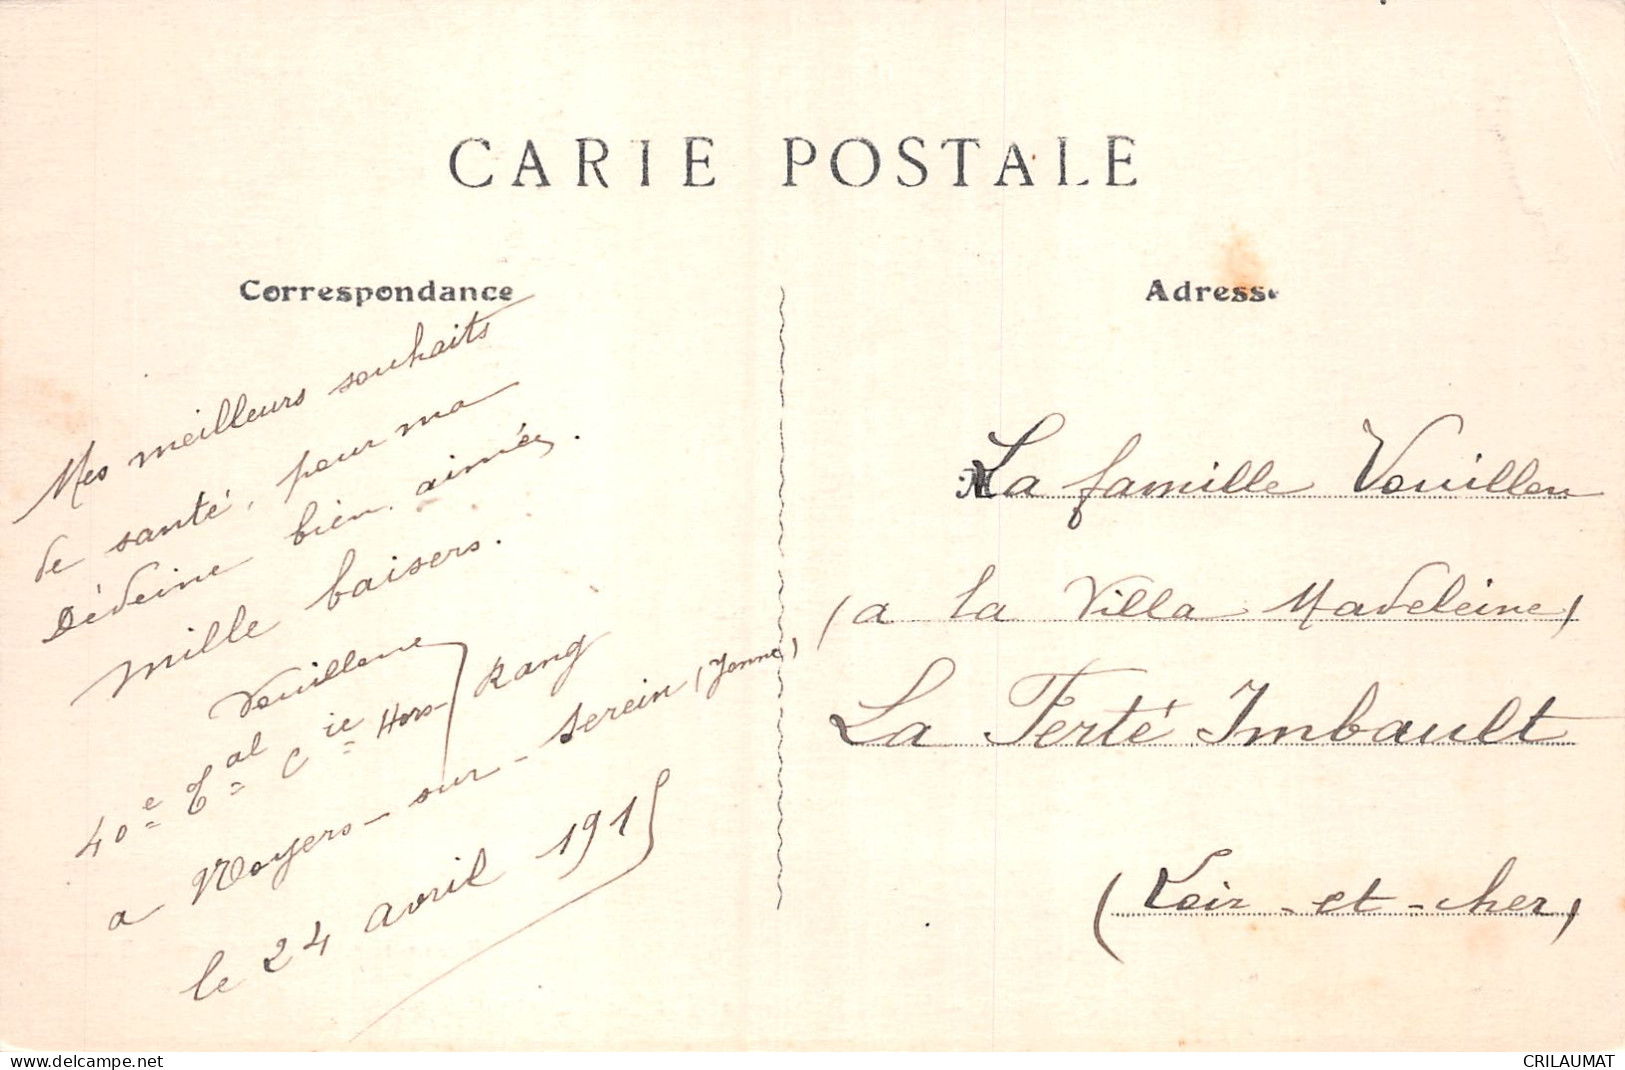 CARTE POSTALE
Correspondance
Mes meilleurs souhaits
de santé, pour ma
Dédeine bien aimée.
mille baisers.
40e tal Cie Hors-Rang
a Noyers-sur-Serein (Yonne)
le 24 avril 1915
Adresse
La famille
(a la Villa Madeleine)
La Ferté Imbault
(Loir-et-Cher)
www.delcampe.net
CRILAUMAT